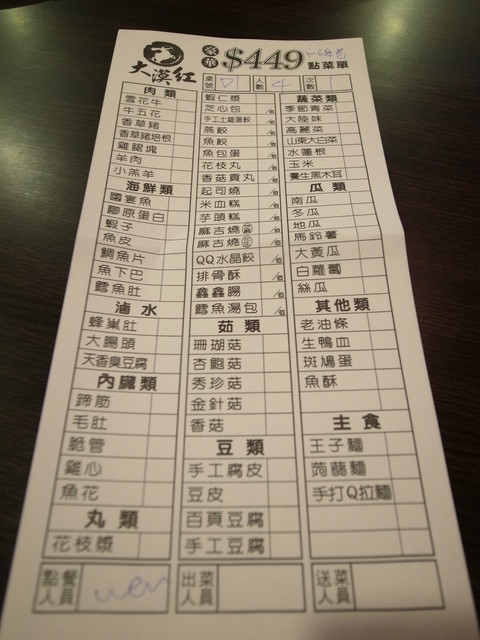 大漠紅
豪華 $449 點菜單
桌號 人數 4 次數
肉類
雪花牛
牛五花
香草豬
香草豬培根
雞腿塊
羊肉
小羔羊
海鮮類
國宴魚
膠原蛋白
蝦子
魚皮
鯛魚片
魚下巴
鱈魚肚
滷水
蜂巢肚
大腸頭
天香臭豆腐
內臟類
蹄筋
毛肚
脆管
雞心
魚花
丸類
花枝漿
點餐人員 wen
蝦仁漿
芝心包
手工土雞蛋餃
燕餃
魚餃
魚包蛋
花枝丸
香菇貢丸
起司燒
米血糕
芋頭糕
麻吉燒
麻吉燒
QQ水晶餃
排骨酥
鑫鑫腸
鱈魚湯包
菇類
珊瑚菇
杏鮑菇
秀珍菇
金針菇
香菇
豆類
手工腐皮
豆皮
百頁豆腐
手工豆腐
出菜人員
蔬菜類
季節青菜
大陸妹
高麗菜
山東大白菜
水蓮根
玉米
養生黑木耳
瓜類
南瓜
冬瓜
地瓜
馬鈴薯
大黃瓜
白蘿蔔
絲瓜
其他類
老油條
生鴨血
斑鳩蛋
魚酥
主食
王子麵
蒟蒻麵
手打Q拉麵
送菜人員